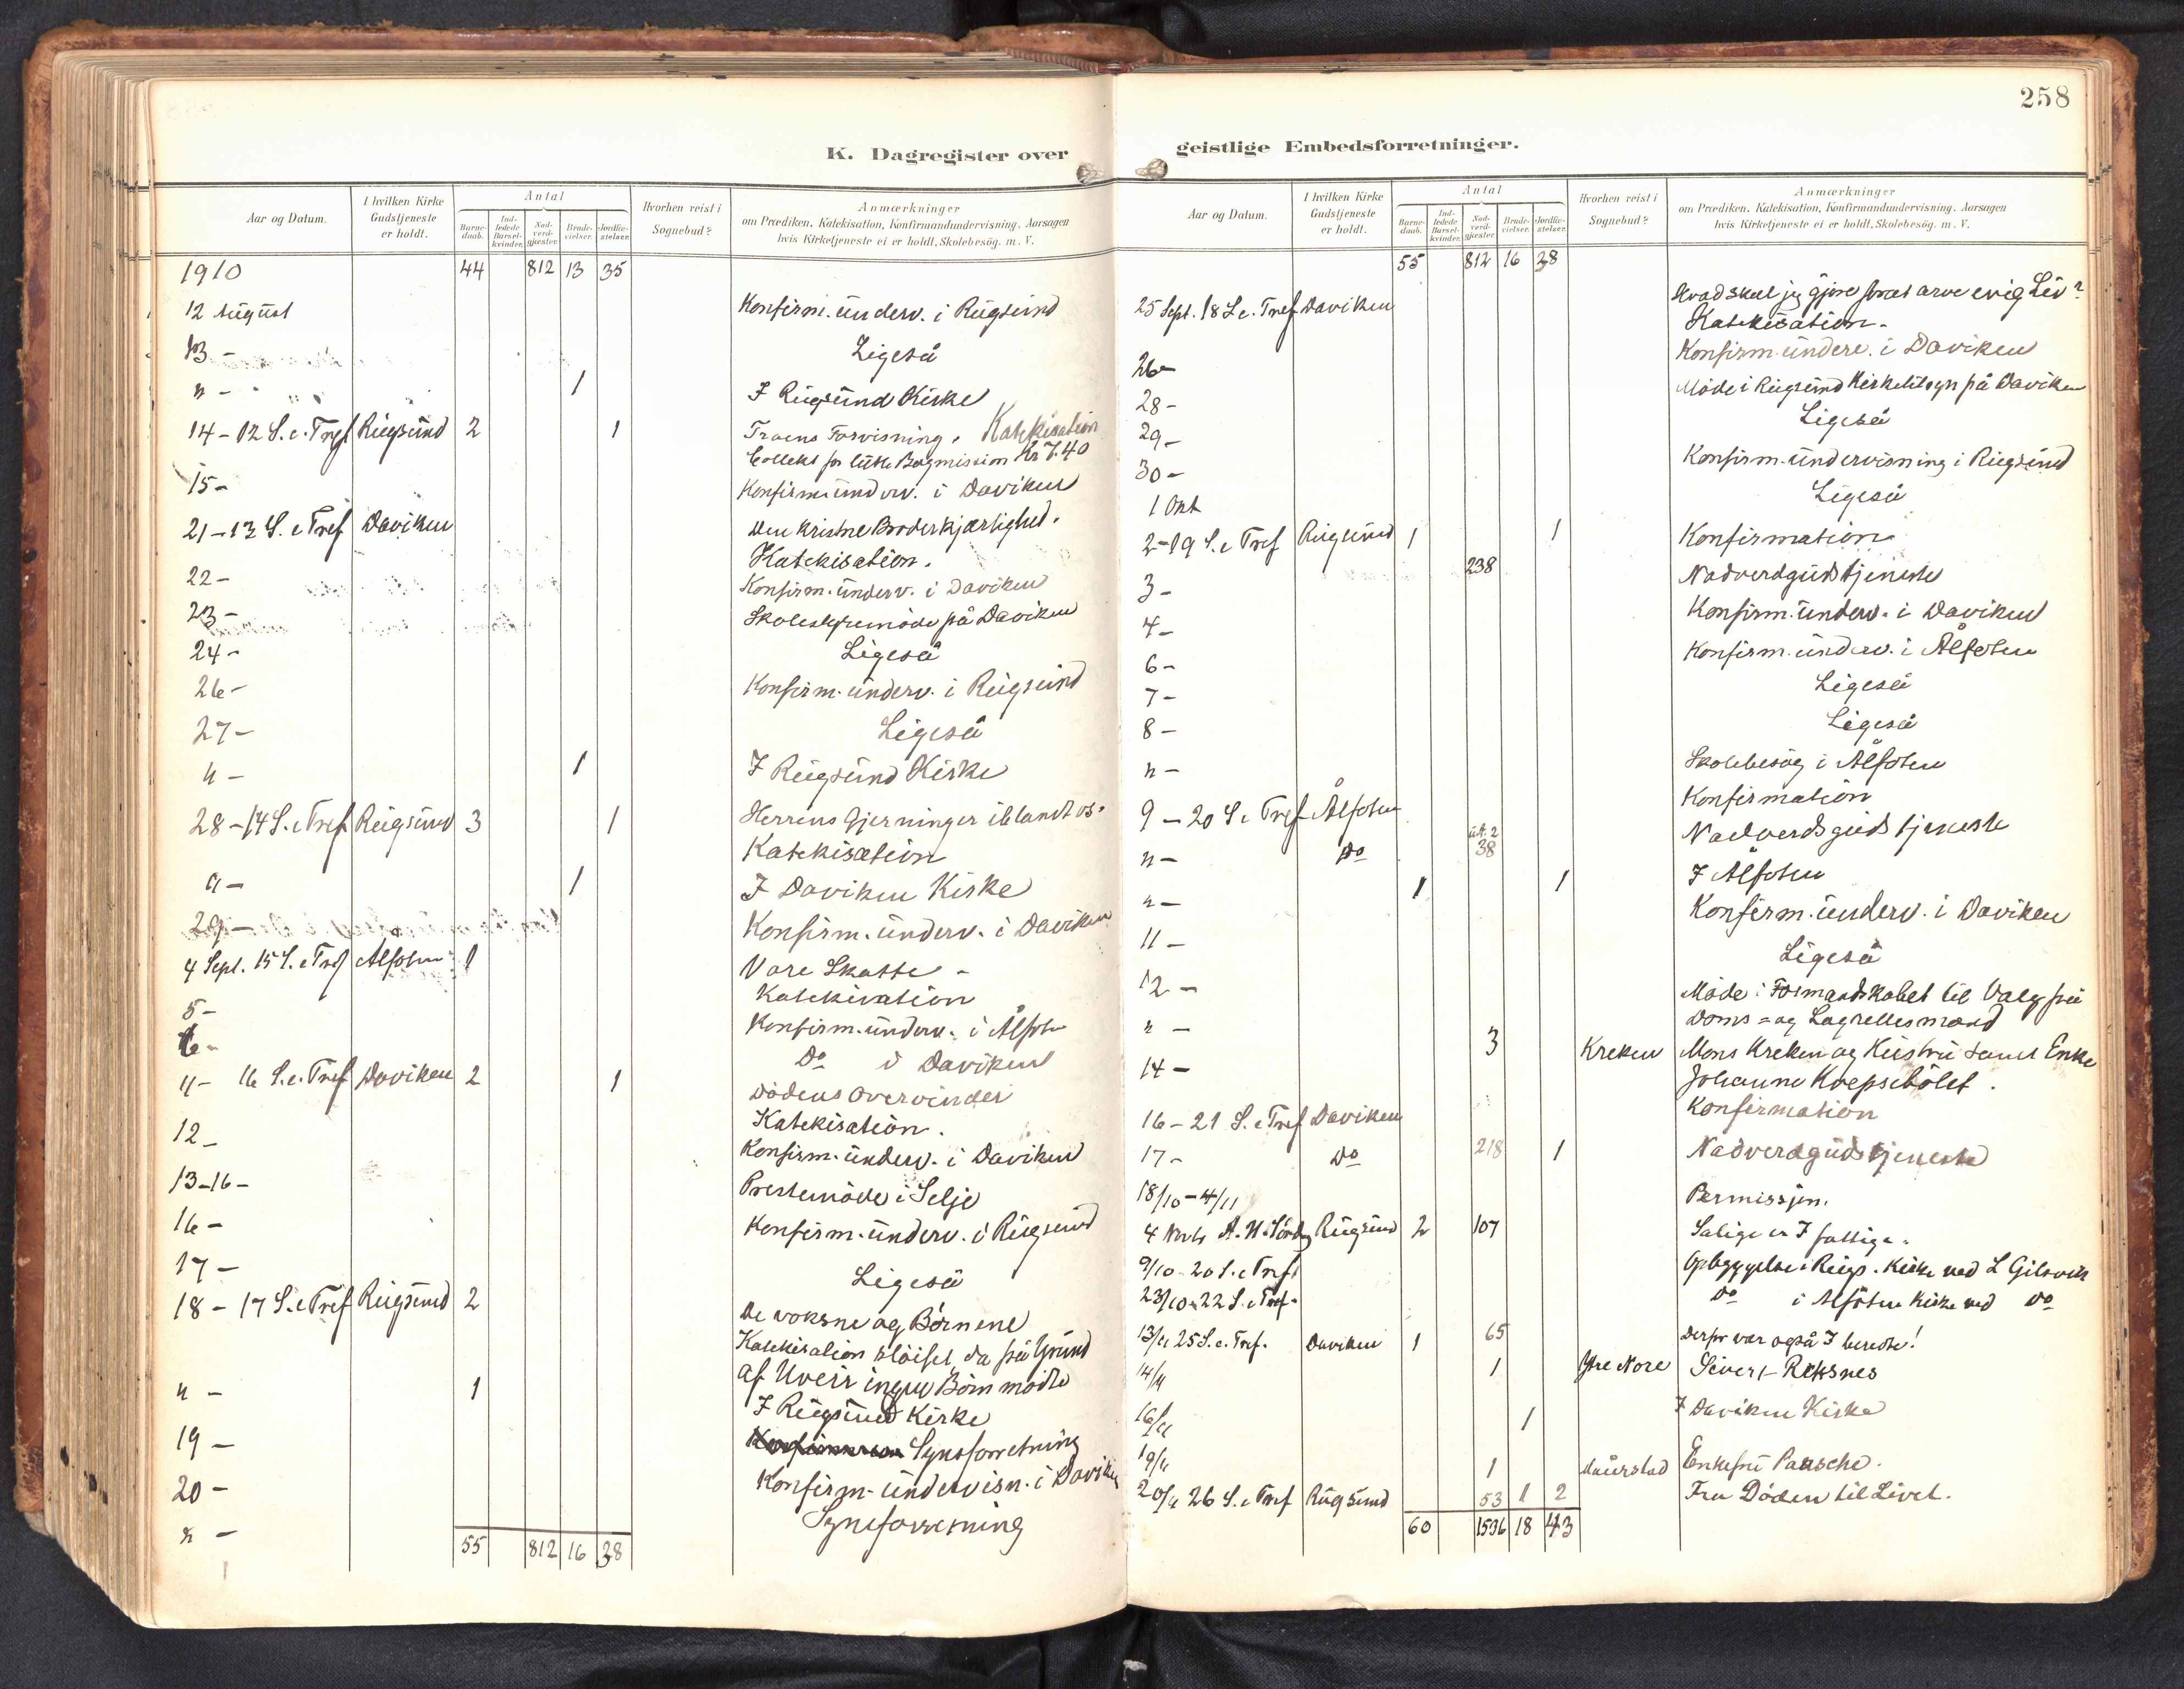 258
K. Dagregister over geistlige Embedsforretninger.
Aar og Datum. I hvilken Kirke Gudstjeneste er holdt. Antal Barne-daab. Ind-ledede Barsel-kvinder. Nad-verd-gjæster. Brude-vielser. Jordfæ-stelser. Hvorhen reist i Sognebud? Anmærkninger om Prædiken, Katekisation, Konfirmandundervisning, Aarsagen hvis Kirketjeneste ei er holdt, Skolebesøg. m. V.
1910 44 812 13 35
12 August Konfirm. underv. i Rugsund
13 - Ligeså
" - 1 I Rugsund Kirke
14 - 12 S. e. Tref Rugsund 2 1 Troens Forvisning. Katekisation
Collekt for Bogmission Kr 7.40
15 - Konfirm. underv. i Daviken
21 - 13 S. e Tref Daviken Den kristne Broderkjærlighed.
Katekisation.
22 - Konfirm. underv. i Daviken
23 - Skolestyremöde på Daviken
24 - Ligeså
26 - Konfirm. underv. i Rugsund
27 - Ligeså
" - 1 I Rugsund Kirke
28 - 14 S. e Tref Rugsund 3 1 Herrens Gjerninger iblandt os.
Katekisation
" - 1 I Daviken Kirke
29 - Konfirm. underv. i Daviken
4 Sept. 15 S. e Tref Alfoten 1 Vore Skatte -
Katekisation
5 - Konfirm. underv. i Ålfoten
6 - Do i Daviken
11 - 16 S. e. Tref Daviken 2 1 Dödens Overvinder
Katekisation.
12 - Konfirm. underv. i Daviken
13-16 - Prestemöde i Selje
16 - Konfirm. underv. i Rugsund
17 - Ligeså
18 - 17 S. e Tref Rugsund 2 De voksne og Börnene
Katekisation slöifet, da på Grund
af Uveir ingen Börn mödte
" - 1 I Rugsund Kirke
19 - Synsforretning
20 - Konfirm. undervisn. i Daviken
" - Synsforretning
55 812 16 38
Aar og Datum. I hvilken Kirke Gudstjeneste er holdt. Antal Barne-daab. Ind-ledede Barsel-kvinder. Nad-verd-gjæster. Brude-vielser. Jordfæ-stelser. Hvorhen reist i Sognebud? Anmærkninger om Prædiken, Katekisation, Konfirmandundervisning, Aarsagen hvis Kirketjeneste ei er holdt, Skolebesøg. m. V.
55 812 16 38
25 Sept. 18 S. e. Tref Daviken Hvad skal jeg gjöre for at arve evig Liv?
Katekisation.
26 - Konfirm. underv. i Daviken
28 - Möde i Rugsund Kirketilsyn på Daviken
29 - Ligeså
30 - Konfirm. undervisning i Rugsund
1 Okt Ligeså
2 - 19 S. e Tref Rugsund 1 1 Konfirmation
3 - 238 Nadverdgudstjeneste
4 - Konfirm. underv. i Daviken
6 - Konfirm. underv. i Ålfoten
7 - Ligeså
8 - Ligeså
" - Skolebesög i Ålfoten
9 - 20 S. e Tref Ålfoten Konfirmation
" - Do 38 Nadverdsgudstjeneste
" - 1 1 I Ålfoten
11 - Konfirm. underv. i Daviken
12 - Ligeså
" - Möde i Formandskabet til Valg på
Doms- og Lagrettesmænd
14 - 3 Kreken Mons Kreken og Hustru samt Enke
Johanne
16 - 21 S. e Tref Daviken Konfirmation
17 - Do 218 1 Nadverdgudstjeneste
18/10 - 4/11 Permissjon.
Rugsund 2 107 Salige er I fattige.
9/10 - 20 S. e Tref Opbyggelse i Rugs. Kirke ved L Gilsvik
23/10 - 22 S. e Tref. Do i Alfoten Kirke ved Do
13/11 25 S. e. Tref. Daviken 1 65 Derfor vær også I beredte!
14/11 1 Ytre Nore Sivert Reksnes
16/11 1 I Daviken Kirke
19/11 1 Maurstad Enkefru Paasche.
20/11 26 S. e Tref Rugsund 53 1 2 Fra Döden til Livet.
60 1536 18 43